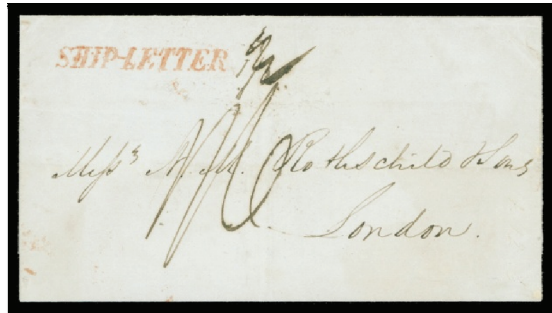 SHIP-LETTER
Messrs N. M. Rothschild & Sons
London.